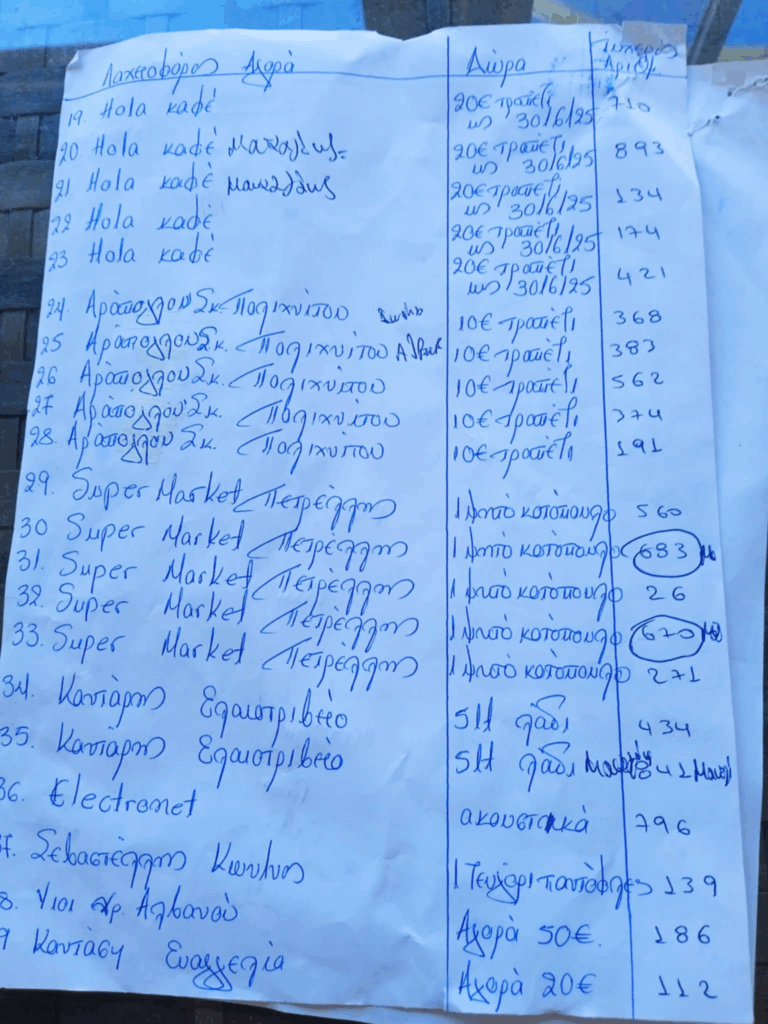 Λαχειοφόρος Αγορά Δώρα Τυχερός Αριθμ.
19. Hola καφέ 20€ τραπέζι 710
ως 30/6/25
20 Hola καφέ Μακαλης 20€ τραπέζι 893
ως 30/6/25
21 Hola καφέ 20€ τραπέζι 134
ως 30/6/25
22 Hola καφέ 20€ τραπέζι 174
ως 30/6/25
23 Hola καφέ 20€ τραπέζι 421
ως 30/6/25
24. Αράπογλου Σκ. Πολιχνίτου 10€ τραπέζι 368
25 Αράπογλου Σκ. Πολιχνίτου 10€ τραπέζι 383
26 Αράπογλου Σκ. Πολιχνίτου 10€ τραπέζι 562
27 Αράπογλου Σκ. Πολιχνίτου 10€ τραπέζι 374
28. Αράπογλου Σκ. Πολιχνίτου 10€ τραπέζι 191
29. Super Market Πετρέλλης 1 ψητό κοτόπουλο 560
30 Super Market Πετρέλλης 1 ψητό κοτόπουλο 683
31. Super Market Πετρέλλης 1 ψητό κοτόπουλο 26
32. Super Market Πετρέλλης 1 ψητό κοτόπουλο 670
33. Super Market Πετρέλλης 1 ψητό κοτόπουλο 271
34. Καντάρης Ελαιοτριβείο 5lt λάδι 434
35. Καντάρης Ελαιοτριβείο 5lt λάδι 841
36. Electronet ακουστικά 796
7. Σεβαστέλλης Κων/νος 1 ζευγάρι παντόφλες 139
8. Υιοι Χρ. Αλβανού Αγορά 50€. 186
9 Καντάση Ευαγγελία Αγορά 20€ 112